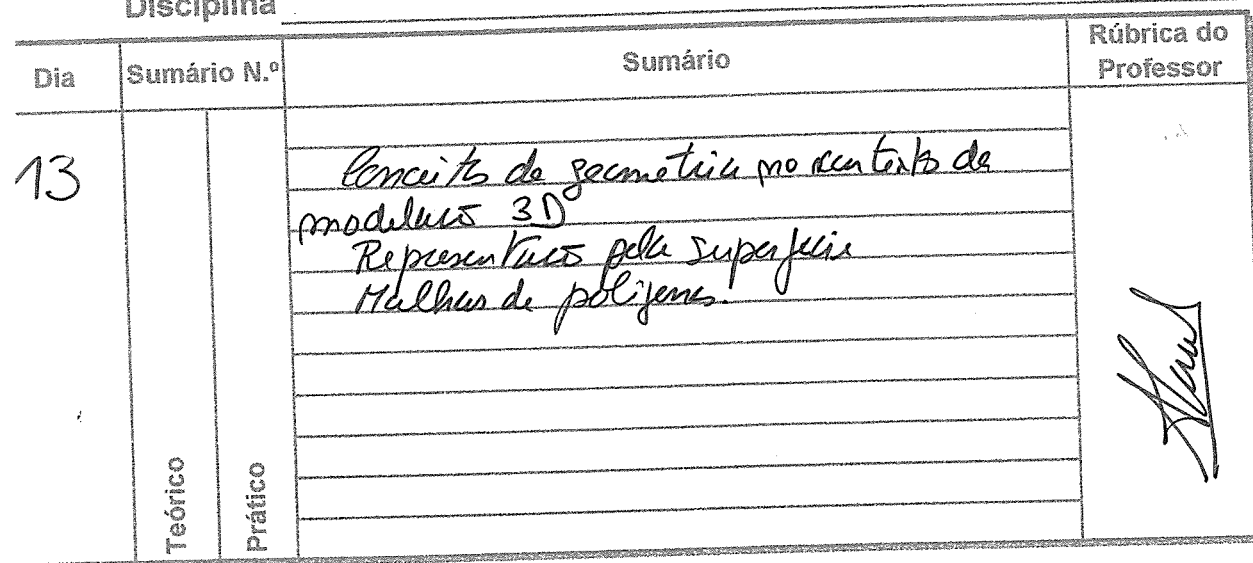 Disciplina
Dia
Sumário N.º
Sumário
Rúbrica do
Professor
13
Conceitos de geometria no contexto de
modelação 3D
Representação pela superfície
Malhas de polígonos.
Teórico
Prático